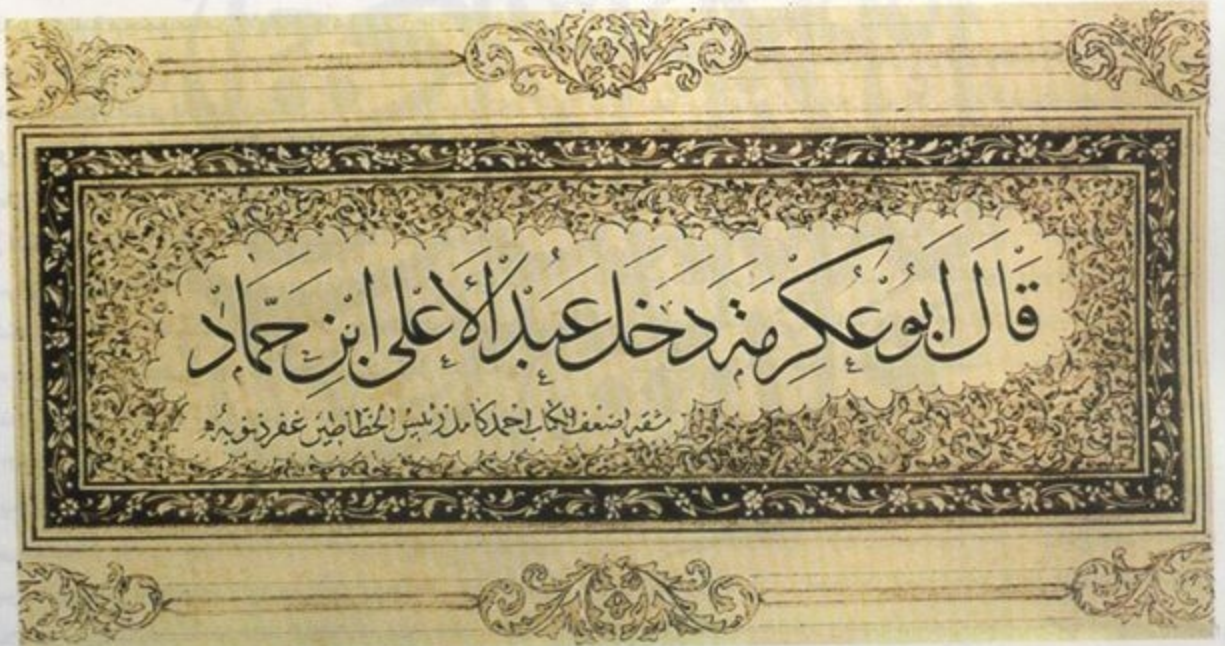 قَالَ اَبُو عِكرِمَة دَخَلَ عَبْدُ الْأَعْلى ابْنِ حَمّادْ
مشقه اضعف الكتاب احمد كامل رئيس الخطاطين غفر ذنوبه